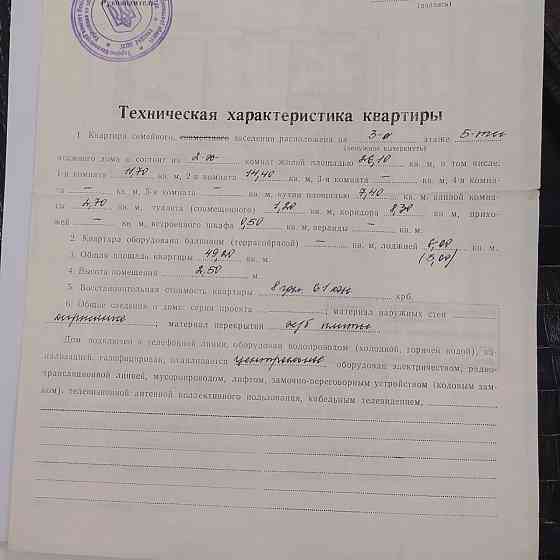 Руководитель
(подпись)
Техническая характеристика квартиры
1. Квартира семейного, совместного заселения расположена на 3-м этаже 5-ти
(ненужное вычеркнуть)
этажного дома и состоит из 2-х комнат жилой площадью 26,10 кв. м, в том числе:
1-й комнате 11,70 кв. м, 2-й комнате 14,40 кв. м, 3-й комната — кв. м, 4-я комна-
та — кв. м, 5-я комната — кв. м, кухни площадью 7,40 кв. м, ванной комна-
ты 2,70 кв. м, туалета (совмещенного) 1,20 кв. м, коридора 8,30 кв. м, прихо-
жей — кв. м, встроенного шкафа 0,50 кв. м, веранды — кв. м.
2. Квартира оборудована балконом (террасой) — кв. м, лоджией 6,00 кв. м.
3. Общая площадь квартиры 49,20 кв. м. (3,00)
4. Высота помещений 2,50 м.
5. Восстановительная стоимость квартиры 8 грн. 61 коп. крб.
6. Общие сведения о доме: серия проекта ; материал наружных стен
кирпична ; материал перекрытий ж/б плиты
Дом подключен к телефонной линии, оборудован водопроводом (холодной, горячей водой), ка-
нализацией, газифицирован, отапливается центральное оборудован электричеством, радио-
трансляционной линией, мусоропроводом, лифтом, замочно-переговорным устройством (кодовым зам-
ком), телевизионной антенной коллективного пользования, кабельным телевидением,